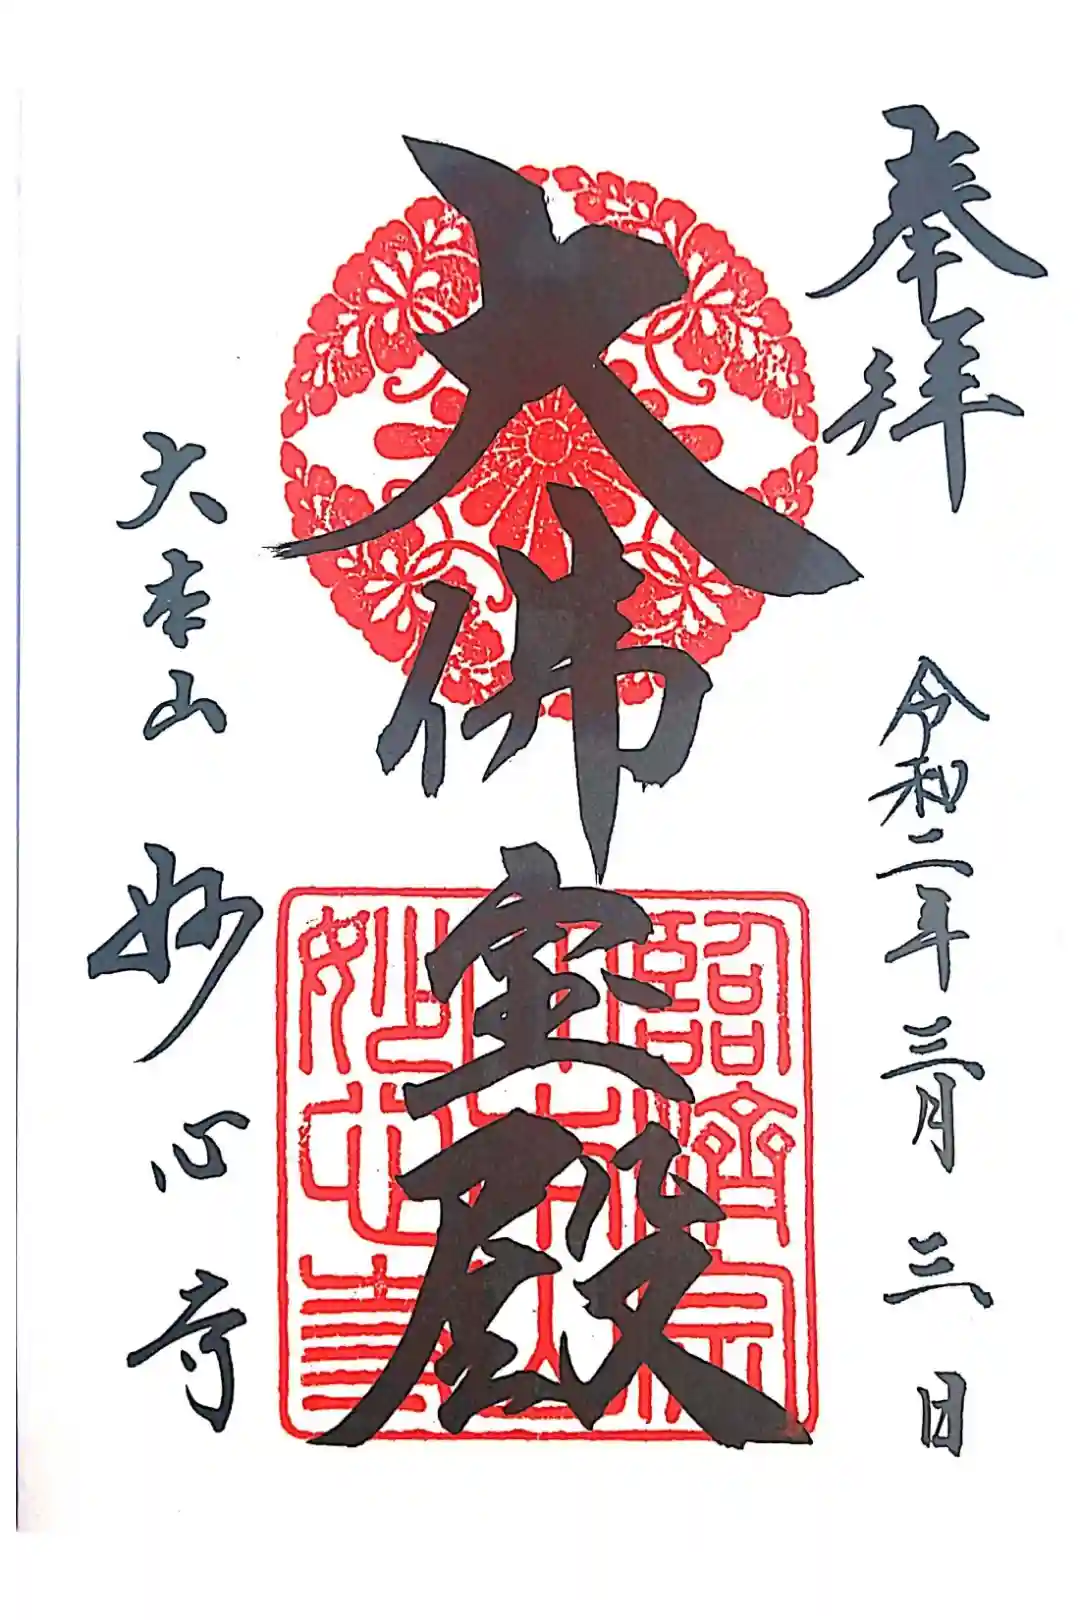 奉拝
令和二年三月三日
大佛宝殿
臨濟宗
大本山
妙心寺
大本山 妙心寺